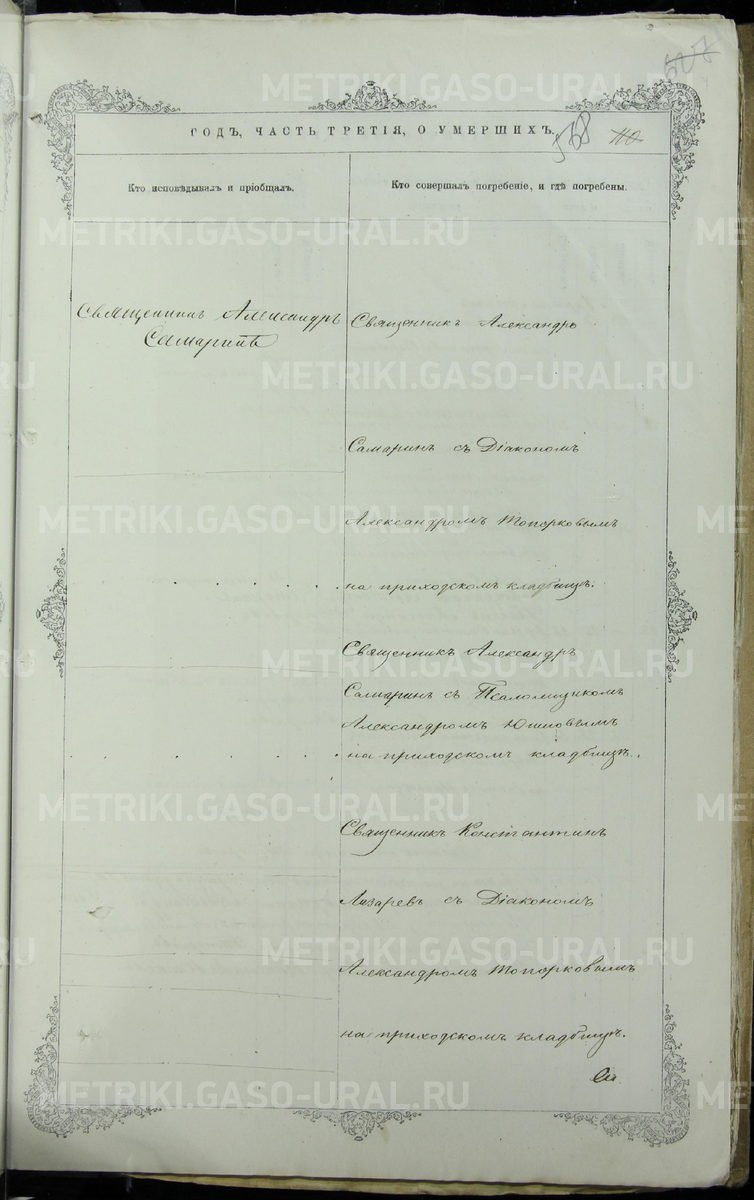 507
ГОДЪ, ЧАСТЬ ТРЕТІЯ, О УМЕРШИХЪ.
538
Кто исповѣдывалъ и пріобщалъ.
Кто совершалъ погребеніе, и гдѣ погребены.
Священникъ Александръ
Самаринъ
Священникъ Александръ
Самаринъ съ Діакономъ
Александромъ Топорковымъ
на приходскомъ кладбищѣ.
Священникъ Александръ
Самаринъ съ Псаломщикомъ
Александромъ
на приходскомъ кладбищѣ.
Священникъ Константинъ
Лазаревъ съ Діакономъ
Александромъ Топорковымъ
на приходскомъ кладбищѣ.
METRIKI.GASO-URAL.RU